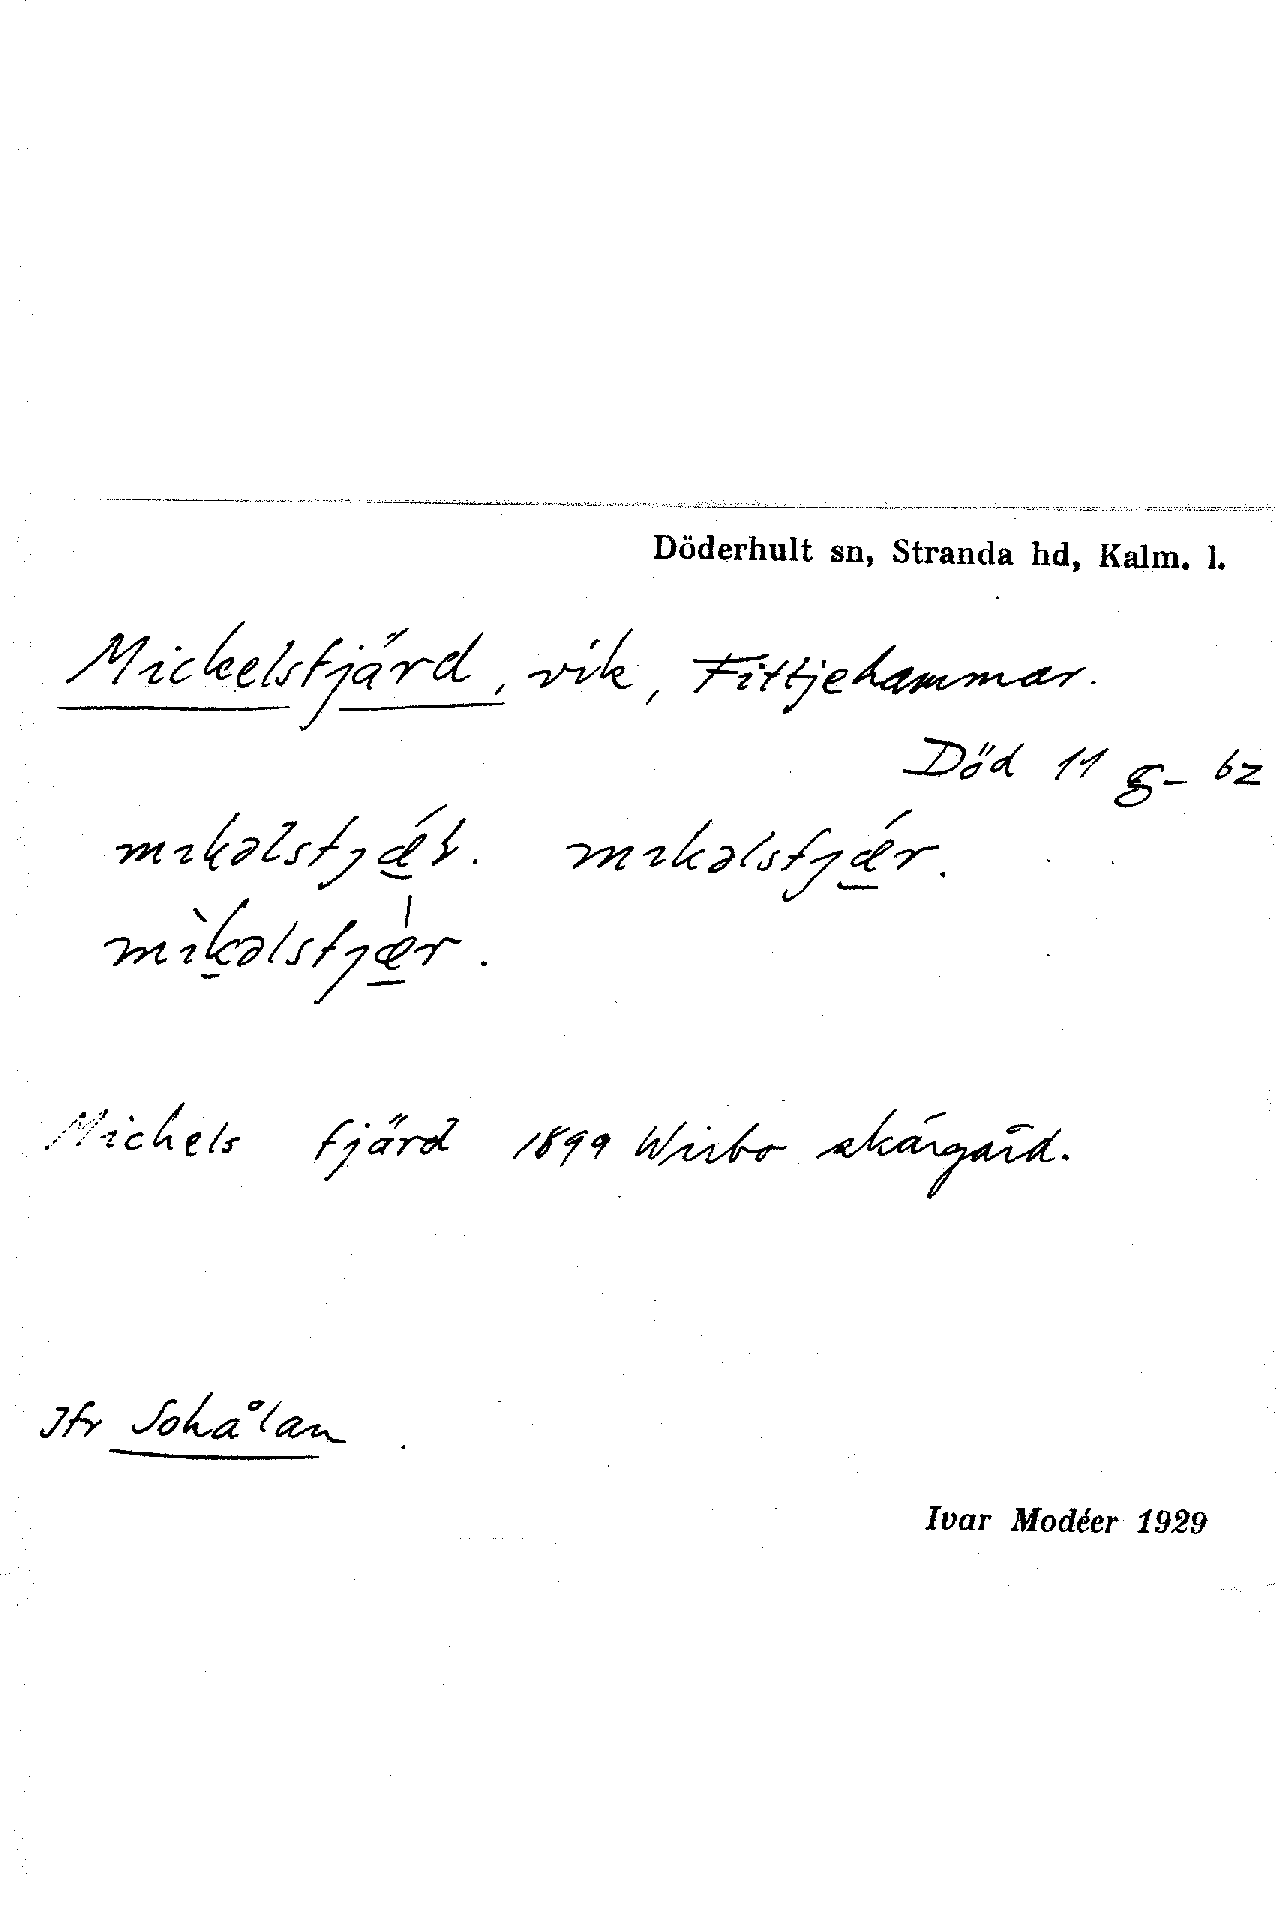 Döderhult sn, Stranda hd, Kalm. l.
Mickelsfjärd, vik, Fittjehammar.
Död 11 g – bz
mıkəlsfjǽr. mıkəlsfjǽr.
mìkəlsfjær.
Michels fjärd 1899 Wirbo skärgård.
Jfr Sohålan
Ivar Modéer 1929